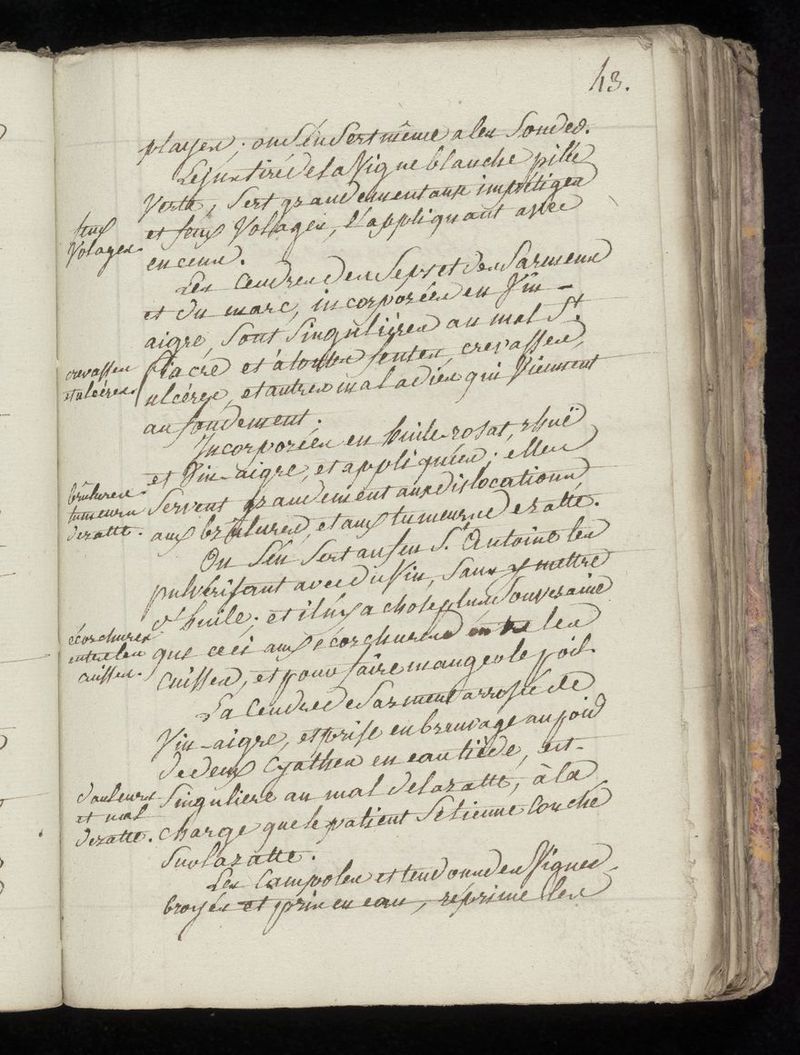 43.
playes ; on s'én sert même a les sondes.
Le jus tiré de la Vigne blanche pilée
Verte, sert grandement aux impétiges
feux
Volages.
et feux Volages, l'appliquant avec
encens.
Les Cendres des Seps et des Sarmens
et du marc, incorporées en Vin-
aigre, sont singulières au mal St.
crevasses
et ulcéres
fiacre et à toutes fentes, crevasses,
ulcéres, et autres maladies qui Viennent
au fondement.
Incorporées en huile rosat, rhuë
et Vin-aigre, et appliquées ; elles
brûlures
tumeurs
de ratte.
servent grandement aux dislocations,
aux brûlures, et aux tumeurs de ratte.
On s'én sert au feu St. Antoine les
pulvérisant avec du Vin, sans y mettre
d'huile ; et il n'y a chose plus souveraine
écorchures
entre les
cuisses.
que ceci aux écorchures entre les
cuisses, et pour faire manger le poil.
La Cendre de Sarment arrosée de
Vin-aigre, et prise en breuvage au poid
de deux Cyathes en eau tiède, est
douleurs
et mal
de ratte.
singuliere au mal de la ratte, à la
charge que le patient se tienne couché
sur la ratte.
Les Campoles et tendons des Vignes,
broyés et pris en eau, réprime les